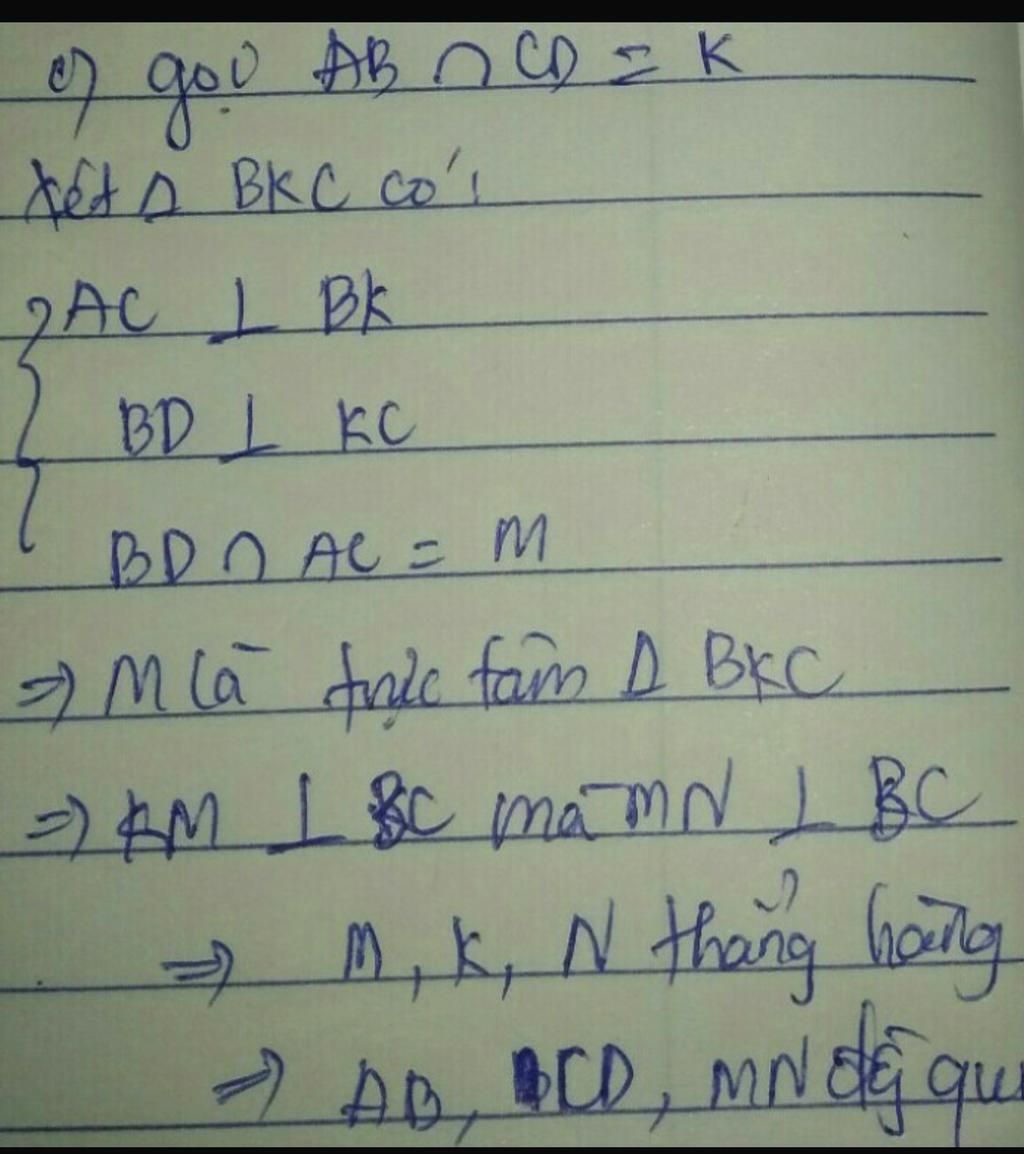 c) gọi AB ∩ CD = K
Xét Δ BKC có:
AC ⊥ BK
BD ⊥ KC
BD ∩ AC = M
=> M là trực tâm Δ BKC
=> KM ⊥ BC mà MN ⊥ BC
=> M, K, N thẳng hàng
=> AB, CD, MN đg qui